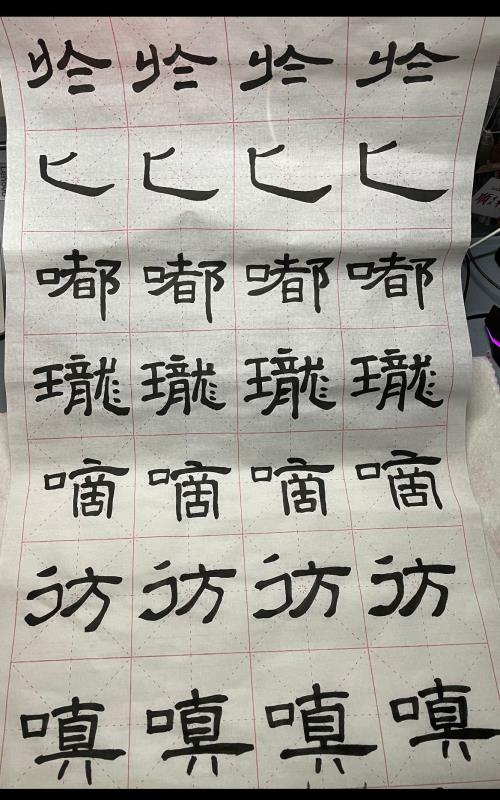 匕匕匕匕
嘟嘟嘟嘟
瓏瓏瓏瓏
嘀嘀嘀嘀
彷彷彷彷
嗔嗔嗔嗔